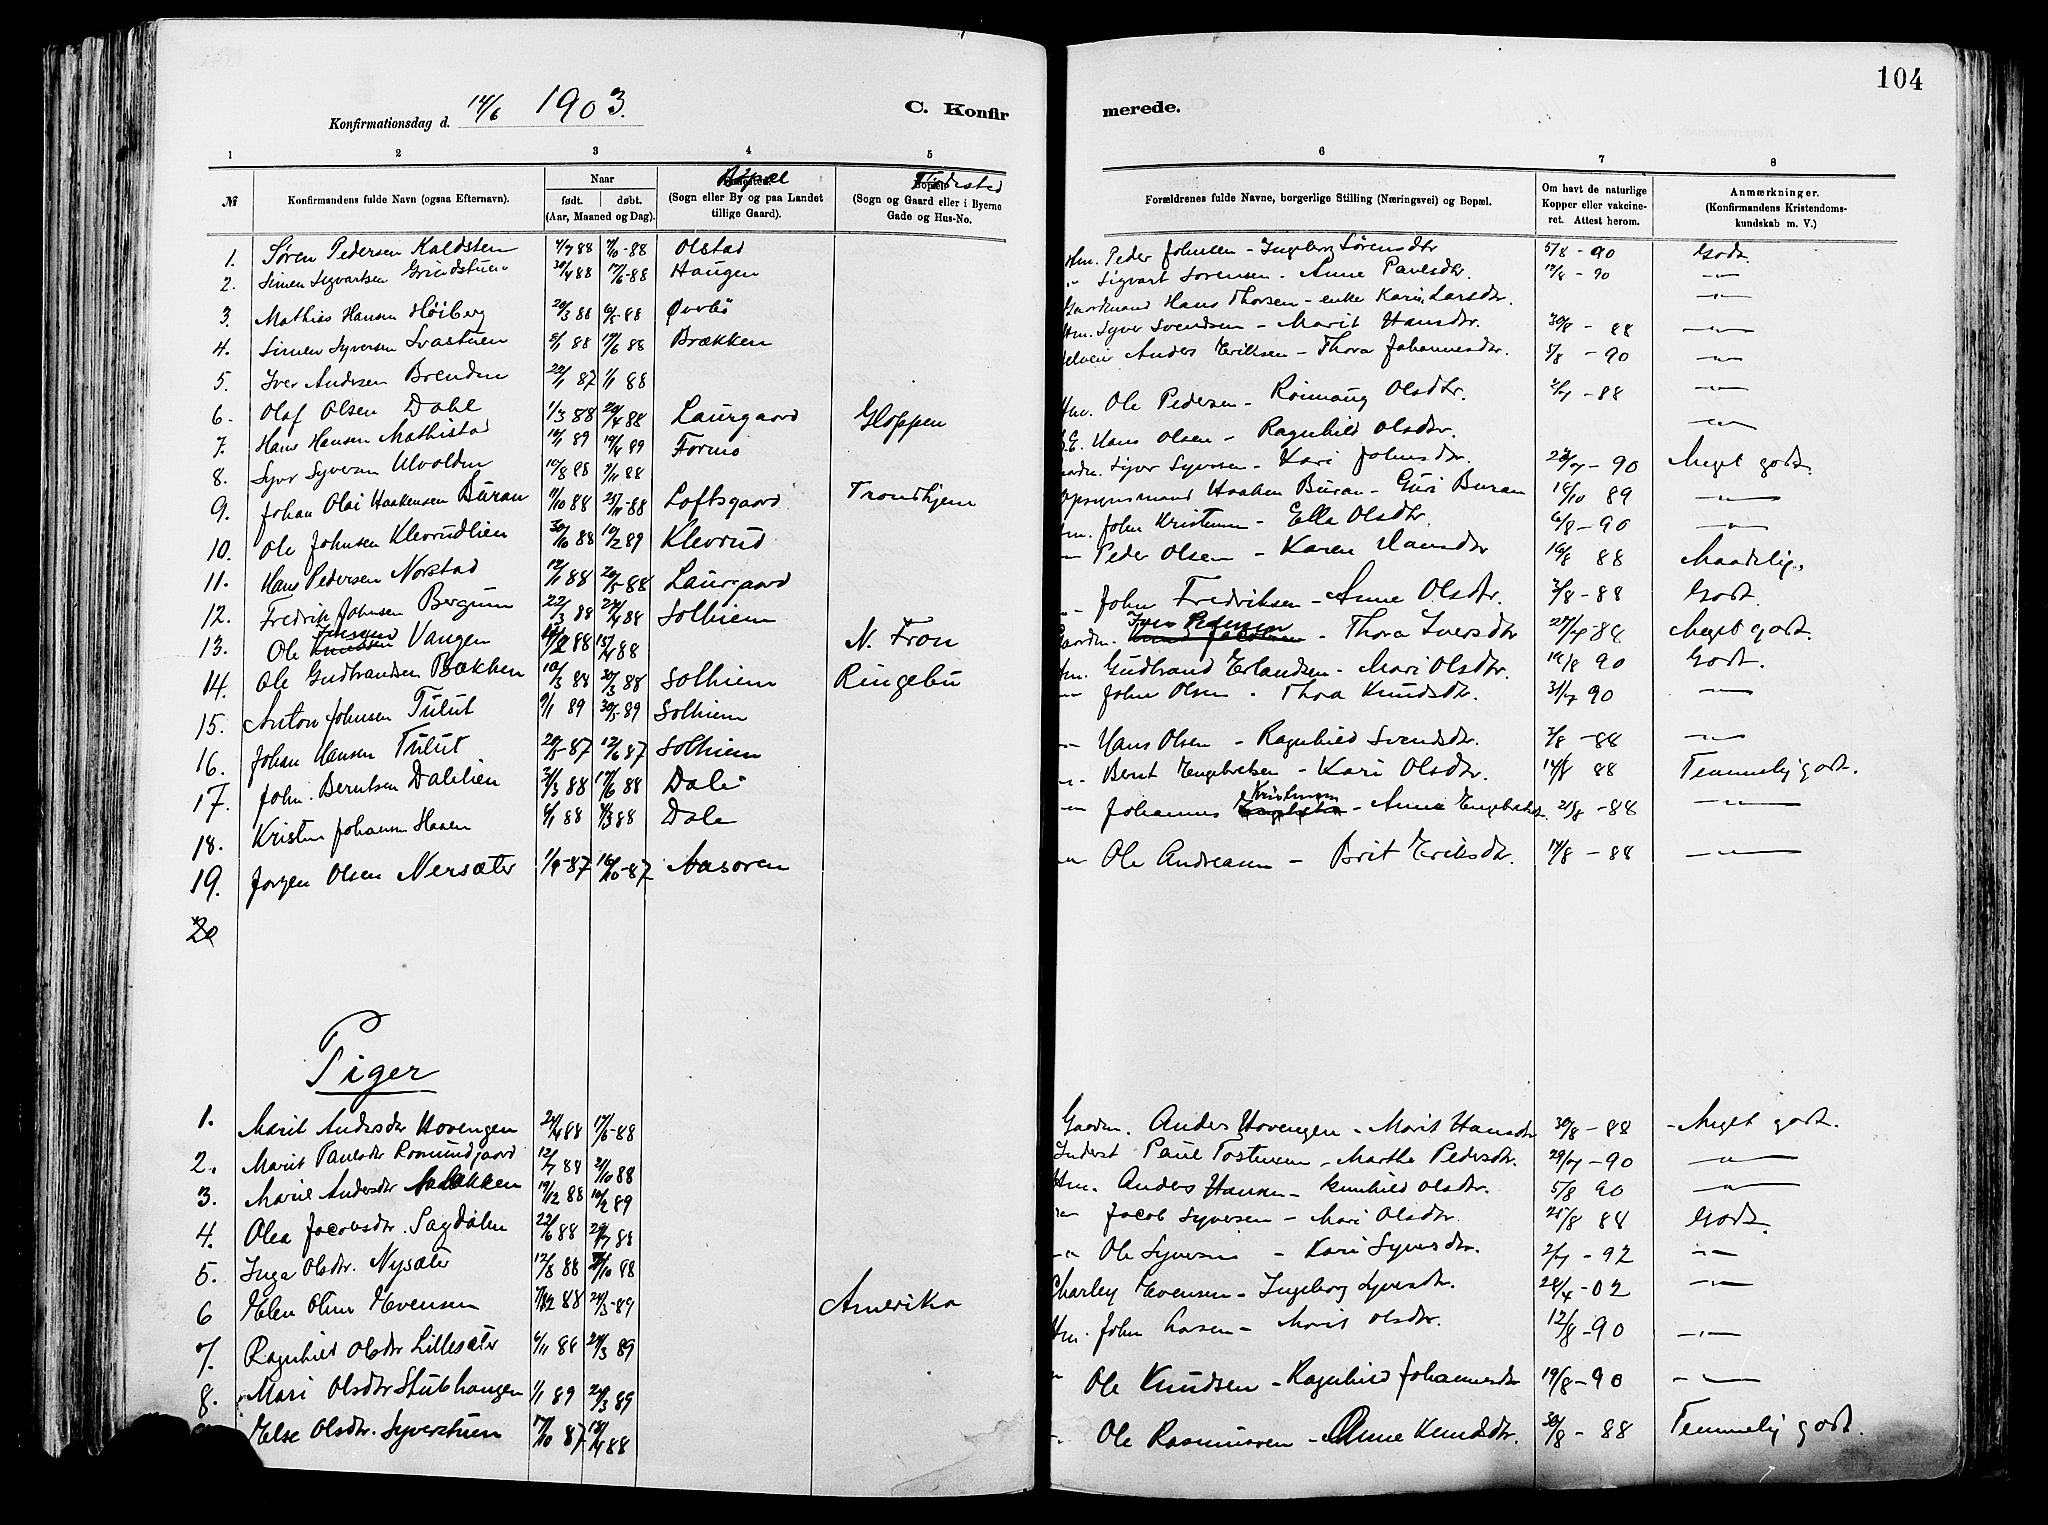 104
Konfirmationsdag d. 14/6 1903.
C. Konfirmerede.
1 2 3 4 5 6 7 8
№ Konfirmandens fulde Navn (ogsaa Efternavn). Naar født. døbt. (Aar, Maaned og Dag). Bopæl (Sogn eller By og paa Landet tillige Gaard). Fødested (Sogn og Gaard eller i Byerne Gade og Hus-No. Forældrenes fulde Navne, borgerlige Stilling (Næringsvei) og Bopæl. Om havt de naturlige Kopper eller vakcineret. Attest herom. Anmærkninger. (Konfirmandens Kristendomskundskab m. V.)
1. Søren Pedersen Kaldsten 4/7 88 -88 Olstad Hm. Peder Johnsen - Ingeborg Sørensdtr 5/8 - 90 Godt
2. Simen Sigvartsen Grindstuen 30/4 88 17/6-88 Haugen " Sigvart Sorensen - Anne Paulsdtr. 12/8 - 90 —"—
3. Mathias Hansen Høiberg 20/3 88 6/5-88 Øvrbø Gaardmand Hans Thorsen - enke Kari Larsdtr. —"—
4. Simen Syversen Svastuen 5/1 88 17/6 88 Brækken Hm. Syver Svendsen - Marit Hansdtr. 30/8 - 88 —"—
5. Iver Andersen Brenden 22/1 87 1/1 88 Anders Eriksen - Thora Johannesdtr. 5/8 - 90 —"—
6. Olaf Olsen Dahl 1/3 88 20/4 88 Laurgaard Gloppen Hm. Ole Pedersen - Roinaug Olsdtr. 2/7 - 88 —"—
7. Hans Hansen Mathistad 89 19/4 89 Formo G.E. Hans Olsen - Ragnhild Olsdtr. —"—
8. Syver Syversen Ulvolden 10/8 88 9/11 88 Gaardm. Syver Syversen - Kari Johnsdtr. - 90 Meget godt
9. Johan Olai Haakensen Buran 11/10 88 25/11-88 Loftsgaard Trondhjem Opsynsmand Haaken Buran - Guri Buran 18/10 89 —"—
10. Ole Johnsen Klevrudlien 30/10 88 10/2 89 Klevrud Hm. John Kristensen - Ella Olsdtr. 6/8 - 90 —"—
11. Hans Pedersen Norstad 12/1 88 20/5-88 Laurgaard —"— Peder Olsen - Karen Hansdtr 16/8 88 Maadelig.
12. Fredrik Johnsen Bergum 22/3 88 22/4 88 Solhiem —"— John Fredriksen - Anne Olsdtr. 3/8 - 88 Godt
13. Ole Knudsen Vangen 88 15/4 88 N. Fron Gaardm. - Thora Iversdtr 27/7-88 Meget godt.
14. Ole Gudbrandsen Bækken 10/3 88 30/3 88 Solhiem Ringebu Hm. Gudbrand Erlandsen - Mari Olsdtr. 19/8 90 Godt.
15. Anton Johnsen Tulut 9/1 89 30/5-89 Solhiem —"— John Olsen - Thora Knudsdtr. 31/7 90 —"—
16. Johan Hansen Tulut 20/5-87 12/6 87 Solhiem —"— Hans Olsen - Ragnhild Svendsdtr. 3/8 - 88 —"—
17. John. Berntsen Dalilien 31/3 88 17/6 88 Dale —"— Bernt Engebretsen - Kari Olsdtr. 14/8 88 Temmelig godt.
18. Kristen Johansen Haven 6/1 88 4/3 88 Dale —"— Johannes Kristensen - Anne Engebretsdtr. 21/8 - 88 —"—
19. Jorgen Olsen Nersæter 1/9-87 16/10-87 Aasoren —"— Ole Andreasen - Brit Eriksdtr. 17/8 - 88 —"—
20
Piger
1. Marit Andersdtr Hovengen 24/4 88 17/6-88 Gaardm. Anders Hovengen - Marit Hansdtr 30/8 - 88 - Meget godt.
2. Marit Paulsdtr Romundgaard 12/7 88 21/10 88 Inderst Paul Tostensen - Marthe Pedersdtr. 29/7 - 90 —"—
3. Marie Andersdtr 19/12 88 10/2 89 Hm. Anders Hansen - Gunhild Olsdtr. 5/8 90 —"—
4. Olea Jacobsdtr. Sagdalen 22/6 88 29/7 88 —"— Jacob Syversen - Mari Olsdtr. 25/8 88 Godt.
5. Inga Olsdtr. Nysæter 12/8 88 /10 88 —"— Ole Syversen - Kari Syversdtr. 2/7 - 92 —"—
6 Elen Oline Evensen 7/12 88 24/3-89 Amerika Charley Evensen - Ingeborg Syversdtr. 28/4 - 02 —"—
7. Ragnhild Olsdtr Lillesæter 6/11 88 24/3 89 Hm. John Larsen - Marit Olsdtr. 12/8 - 90 —"—
8. Mari Olsdtr Stubhaugen 1/1 89 24/3 89 " Ole Knudsen - Ragnhild Johannesdtr 19/8 - 90 —"—
Else Olsdtr. Syverstuen 17/10 87 /4 88 " Ole Rasmussen - Anne Knudsdtr. 30/8 - 88 Temmelig godt.